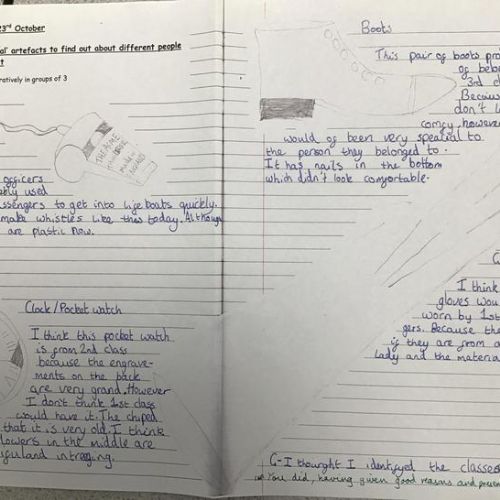 23rd October
al' artefacts to find out about different people
t
ratively in groups of 3
THE ACME
officers
bly used
ssengers to get into life boats quickly.
make whistles like this today. Although
are plastic now.
Clock/Pocket watch
I think this pocket watch
is from 2nd class
because the engrave-
ments on the back
are very grand. However
I don't think 1st class
would have it. The chiped
that it is very old. I think
lowers in the middle are
and
Boots
This pair of boots pro
of belo
3rd c
Becaus
don't l
comfy, however
would of been very speatial to
the person they belonged to.
It has nails in the bottom
which didn't look comfortable.
G
I think
gloves wou
worn by 1st
gers. Because the
if they are from a
Lady and the material
G-I thought I identifyed the classes
You did, having given good reasons and